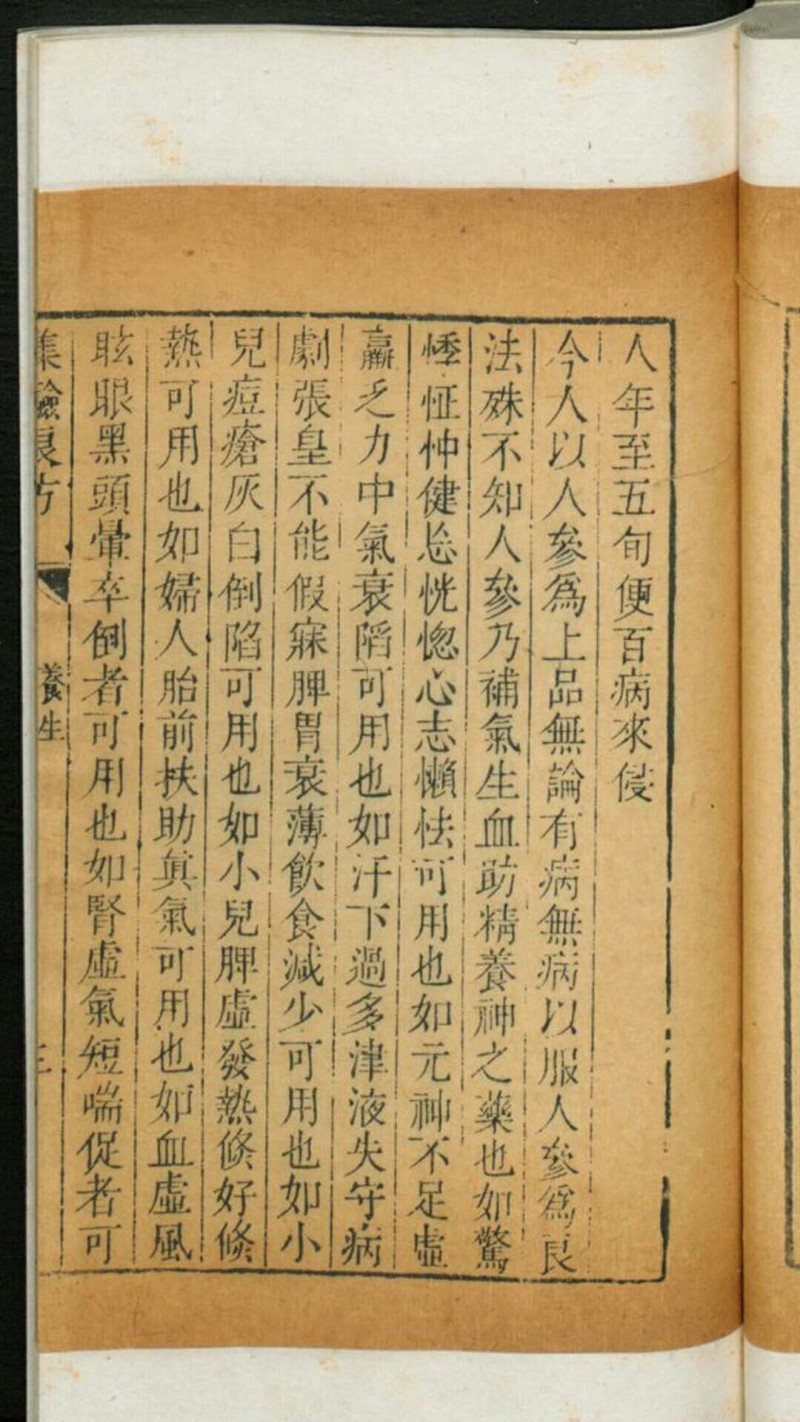 人年至五旬便百病來侵
今人以人參爲上品無論有病無病以服人參爲良
法殊不知人參乃補氣生血助精養神之藥也如驚
悸怔忡健忘恍惚心志懶怯可用也如元神不足虛
羸乏力中氣衰陷可用也如汗下過多津液失守病
劇張皇不能假寐脾胃衰薄飲食減少可用也如小
兒痘瘡灰白倒陷可用也如小兒脾虛發熱倏好倏
熱可用也如婦人胎前扶助眞氣可用也如血虛風
眩眼黑頭暈卒倒者可用也如腎虛氣短喘促者可
集驗良方 養生 三